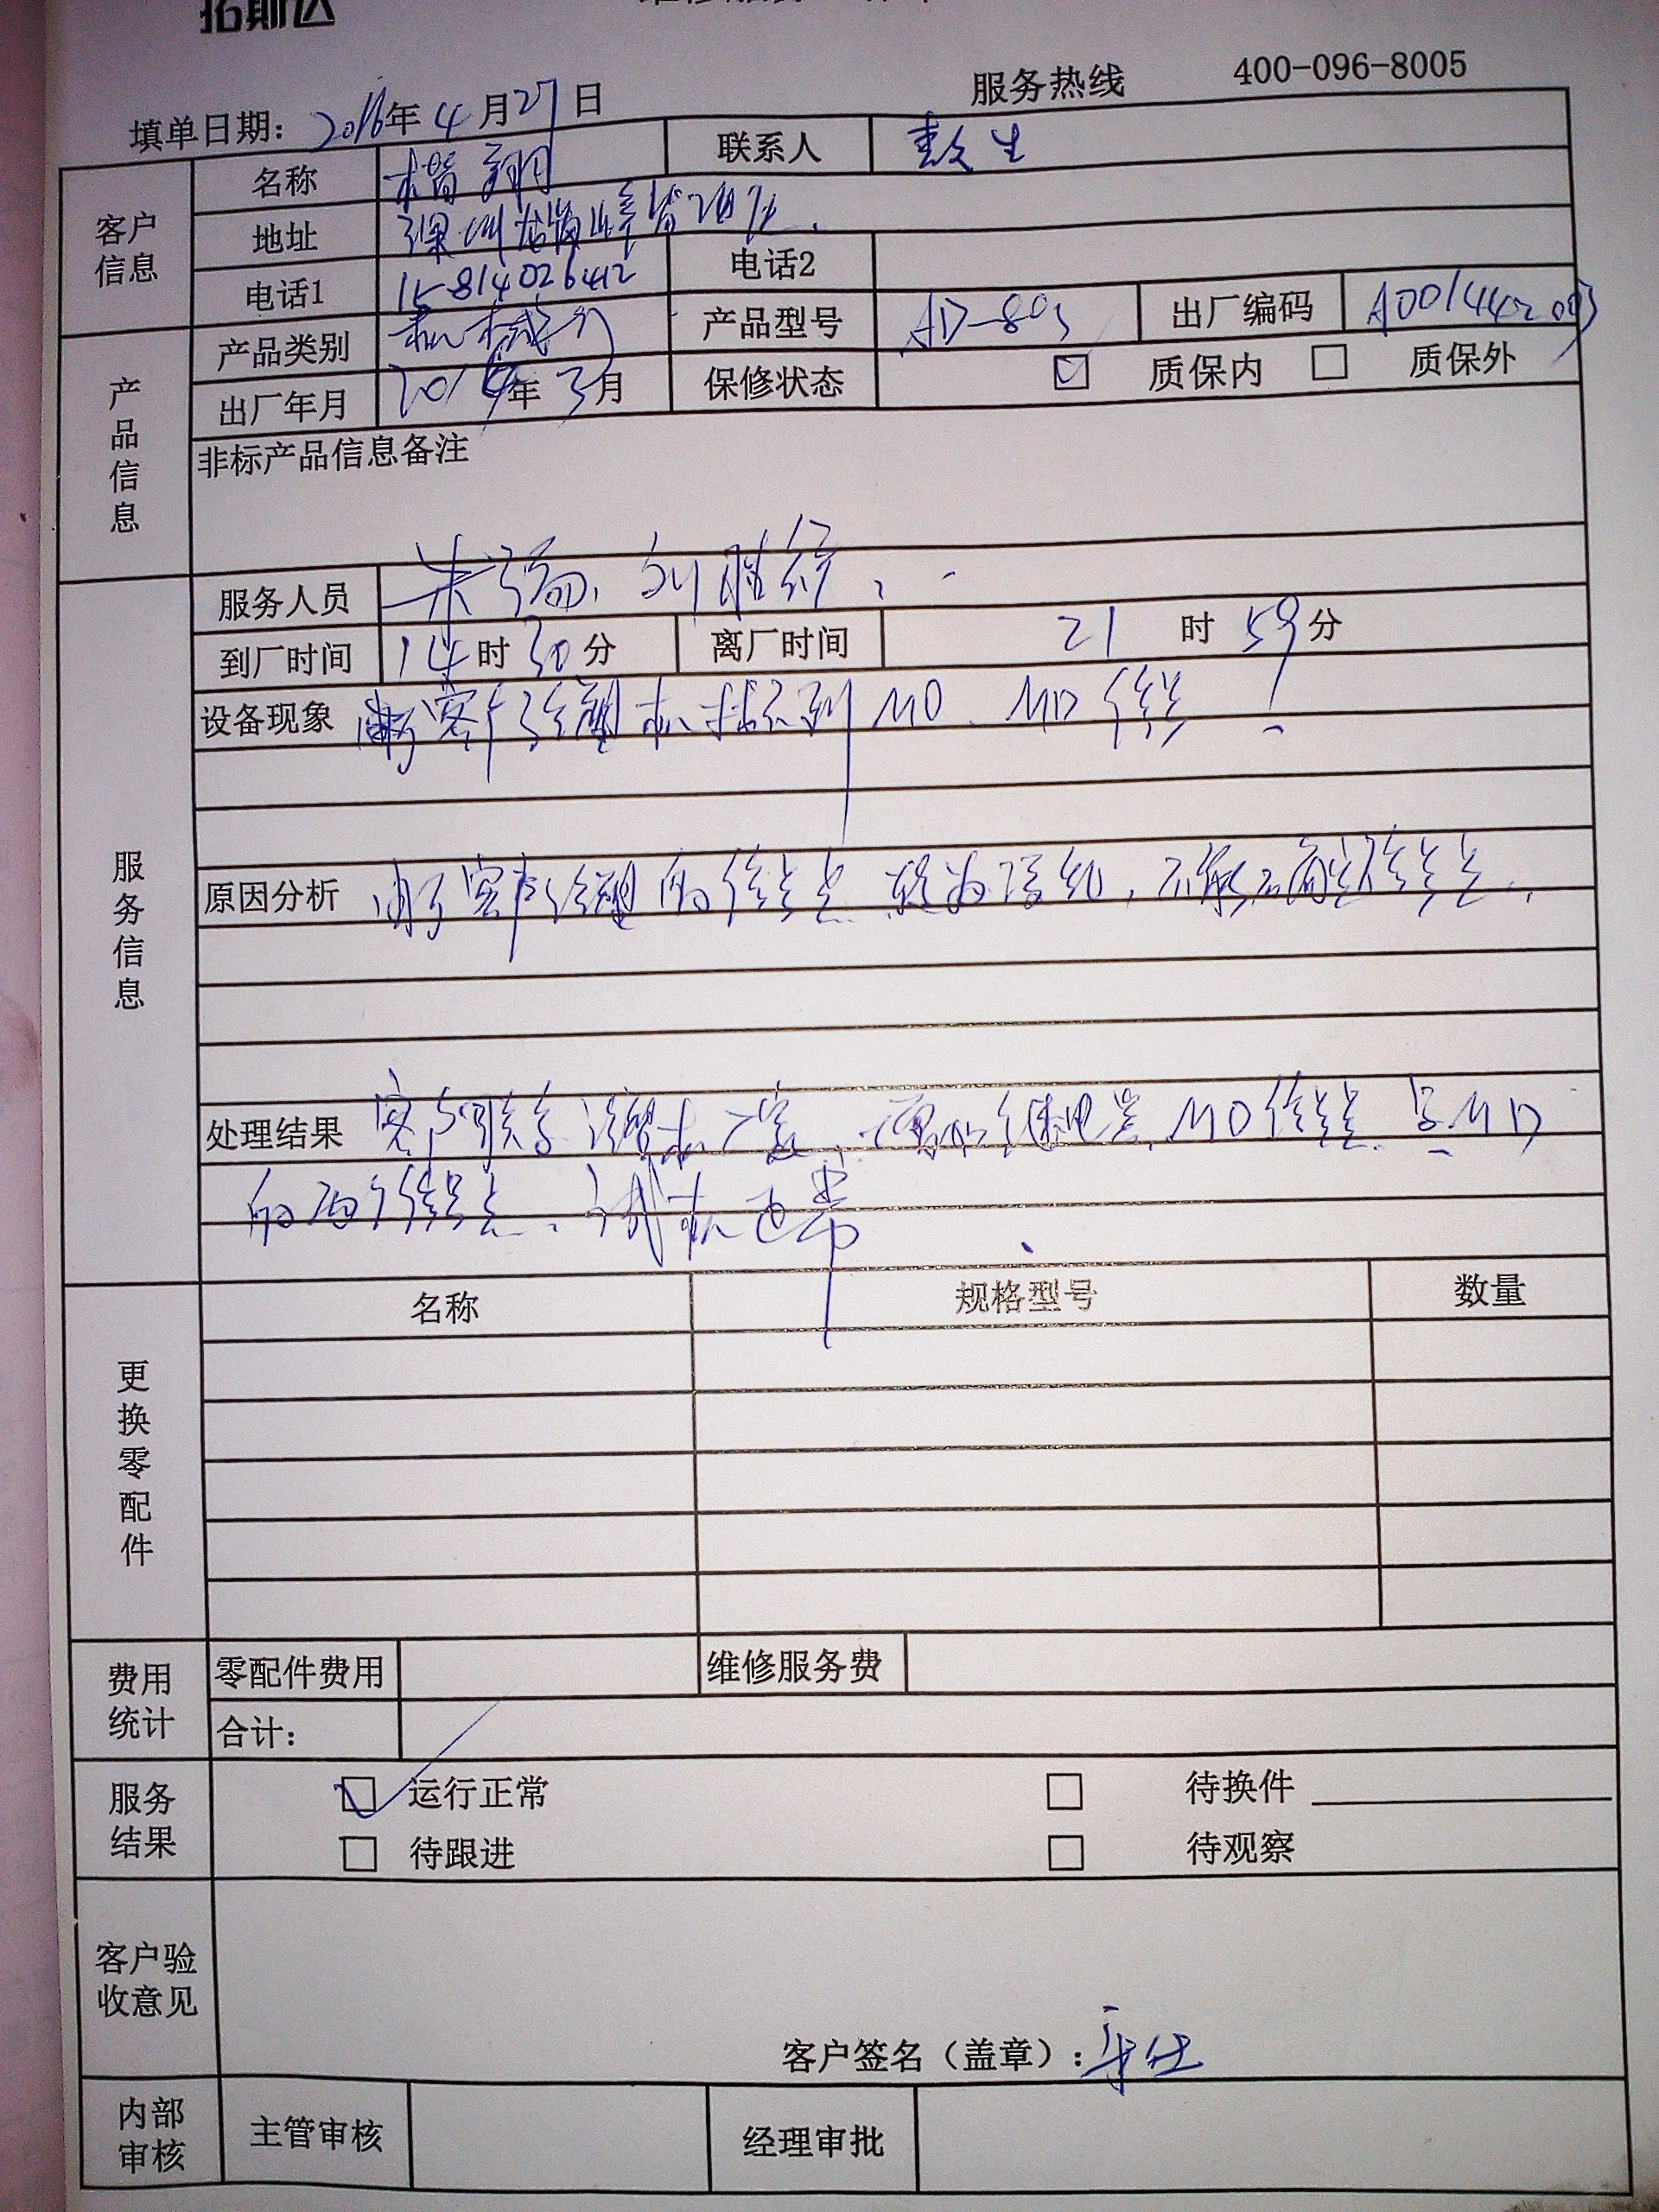 拓斯达
服务热线 400-096-8005
填单日期: 2016年4月27日
客户信息
名称 楷翔 联系人 彭生
地址 深圳
电话1 15814026412 电话2
产品信息
产品类别 机械手 产品型号 AD-80 出厂编码 A001442003
出厂年月 2014年3月 保修状态 ☑ 质保内 □ 质保外
非标产品信息备注
服务信息
服务人员 朱 刘胜
到厂时间 14时30分 离厂时间 21时59分
设备现象 客户注塑机找不到MO、MD信号
原因分析 由于客户注塑的信号点较为混乱,不能确定信号点.
处理结果 客户联系注塑机厂家,继电器,MO信号点与MD
的两个信号点、试机正常
更换零配件
名称 规格型号 数量
费用统计
零配件费用 维修服务费
合计:
服务结果
☑ 运行正常 □ 待换件
□ 待跟进 □ 待观察
客户验收意见
客户签名（盖章）:
内部审核 主管审核 经理审批